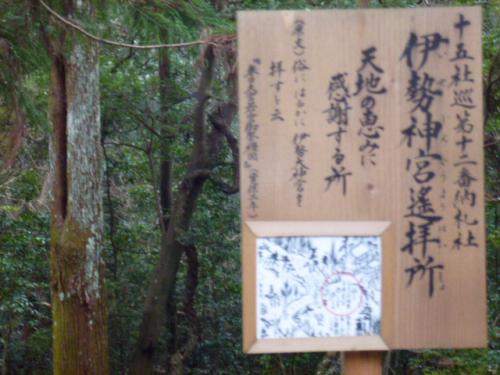 十五社巡第十二番納札社
伊勢神宮遙拝所
天地の恵みに
感謝する所
(原文)俗にはるかに伊勢大神宮を
拝すと云